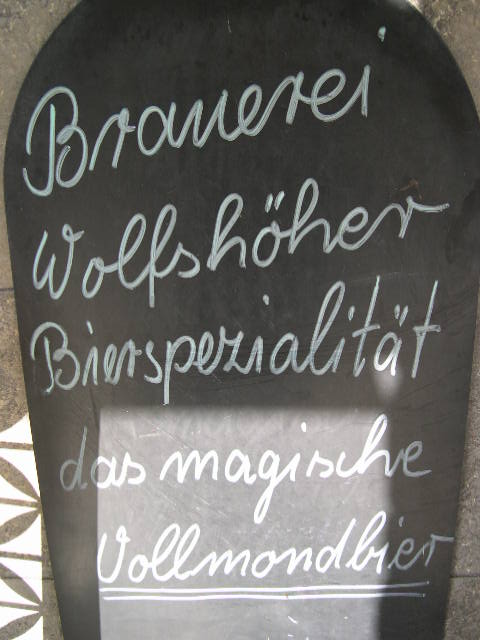 Brauerei
Wolfshöher
Bierspezialität
das magische
Vollmondbier